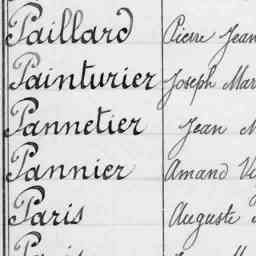 Paillard Pierre Jean
Painturier Joseph Mar
Pannetier Jean M
Pannier Amand
Paris Auguste
Paris